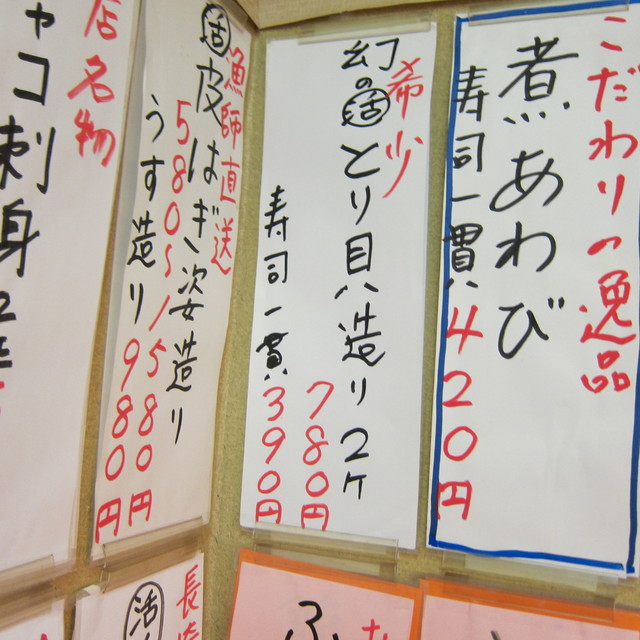 こだわりの逸品
煮あわび
寿司一貫 420円
希少
幻の活とり貝造り 2ヶ
780円
寿司一貫 390円
漁師直送
活皮はぎ姿造り
580〜1580円
うす造り 980円
店名物
ャコ刺身
長崎
活
ふ
な